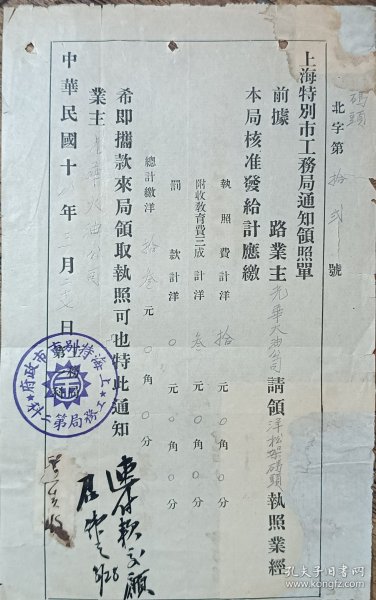 碼頭
北字第拾貳號
上海特別市工務局通知領照單
前據 路業主光華火油公司請領洋松架碼頭執照業經
本局核准發給計應繳
執照費計洋拾元〇角〇分
附收教育費三成計洋叁元〇角〇分
罰款計洋〇元〇角〇分
總計繳洋拾叁元〇角〇分
希即攜款來局領取執照可也特此通知
業主光華火油公司
中華民國十 年 三月 日
上海特別市市政府
工務局第二科
孔夫子旧书网